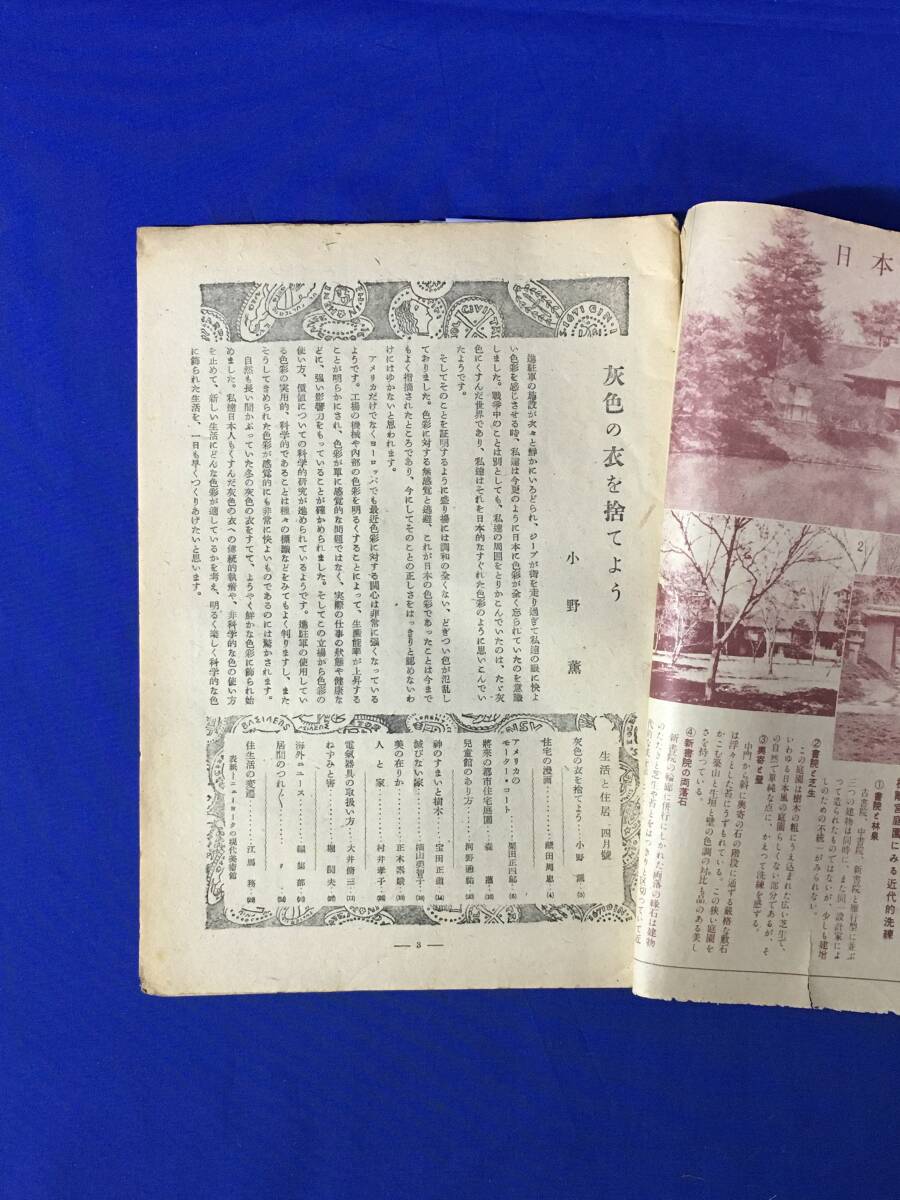 日本
2
灰色の衣を捨てよう
小野薫
進駐軍の施設が次々と鮮かにいろどられ、ジープが街を走り過ぎて私達の眼に快よ
い色彩を感じさせる時、私達は今更のように日本に色彩が全く忘られていたのを意識
しました。戦争中のことは別としても、私達の周囲をとりかこんでいたのは、たゞ灰
色にくすんだ世界であり、私達はそれを日本的なすぐれた色彩のように思いこんでい
たようです。
そしてそのことを証明するように盛り場には調和の全くない、どぎつい色が氾乱し
ておりました。色彩に対する無感覚と逃避、これが日本の色彩であったことは今まで
もよく指摘されたところであり、今にしてそのことの正しさをはっきりと認めないわ
けにはゆかないと思われます。
アメリカだけでなくヨーロッパでも最近色彩に対する関心は非常に強くなっている
ようです。工場の機械や内部の色彩を明るくすることによって、生産能率が上昇する
ことが明らかにされ、色彩が単に感覚的な問題ではなく、実際の仕事の状態や健康な
どに、強い影響力をもっていることが確かめられました。そしてこの立場から色彩の
使い方、価値についての科学的研究が進められているようです。進駐軍の使用してい
る色彩の実用的、科学的であることは種々の標識などをみてもよく判りますし、また
そうしてきめられた色彩が感覚的にも非常に快よいものであるのには驚かされます。
自然も長い間かぶっていた冬の灰色の衣をすてて、ようやく鮮かな色彩に飾られ始
めました。私達日本人もくすんだ灰色の衣への傳統的執着や、非科学的な色の使い方
を止めて、新しい生活にどんな色彩が適しているかを考え、明るく楽しく科学的な色
に飾られた生活を、一日も早くつくりあげたいと思います。
生活と住居 四月號
灰色の衣を捨てよう……小野薫…(3)
住宅の漫画……蔵田周忠…(4)
アメリカの
モーターコート……栗田正四郎…
將來の都市住宅庭園……森
兒童館のあり方……河野通祐…
神のすまいと樹木……宝田正道…(14)
錆びない家……
美の在りか……正木
人と家……村井孝子…
電氣器具の取扱い方……大井脩三…
ねずみと害……堀
海外ニュース……編集部…
居間のつれ〲……〃
住生活の変遷……江馬務…
表紙—ニューヨークの現代美術館
— 3 —
庭園にみる近代的洗練
①書院と林泉
古書院、中書院、新書院と雁行型に並ぶ
つて造られたものではないが、少しも建増
のための不統一がみられない。
②書院と芝生
この庭園は樹木の粗にうえ込まれた広い芝生で、
いわゆる日本風の庭園らしくない部分であるが、そ
の自然で單純な点に、かえつて洗練を感ずる。
③輿寄と壁
中門から斜に輿寄の石の階段に通ずる厳格な敷石
は浮々とした苔にうずもれている。この狭い庭園を
かこむ築山と生垣と壁の色調の対比も品のある美し
さを持つている。
④新書院の雨落石